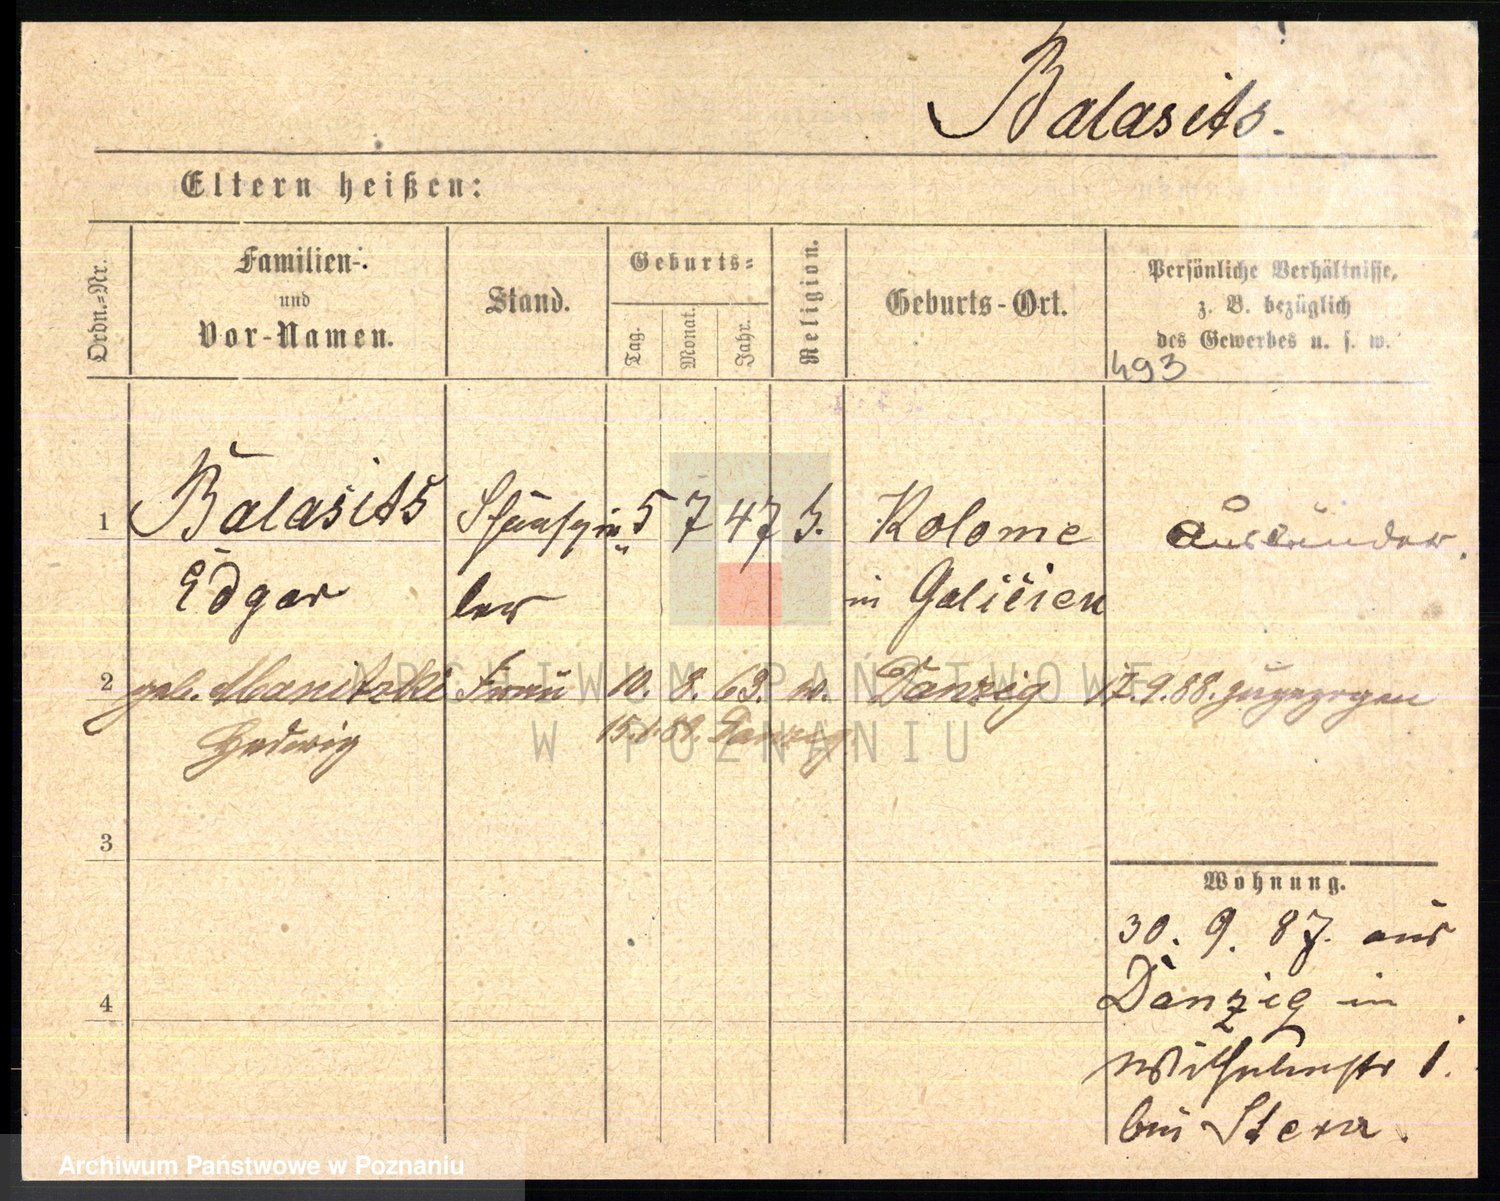 Balasits.
Eltern heißen:
Ordn.=Nr.
Familien-
und
Vor-Namen.
Stand.
Geburts=
Tag.
Monat.
Jahr.
Religion.
Geburts-Ort.
Persönliche Verhältnisse,
z. B. bezüglich
des Gewerbes u. s. w.
493
1 Balasits Schauspie 5 7 47 Kolome Ausländer.
Edgar ler in Galizien
2 geb. Frau 10. 8. 63. Danzig 17.9.88. zugezogen
Hedwig Danzig
3
4
Wohnung.
30. 9. 87. aus
Danzig in
Wilhelmstr 1.
bei Stern.
ARCHIWUM PAŃSTWOWE
W POZNANIU
Archiwum Państwowe w Poznaniu